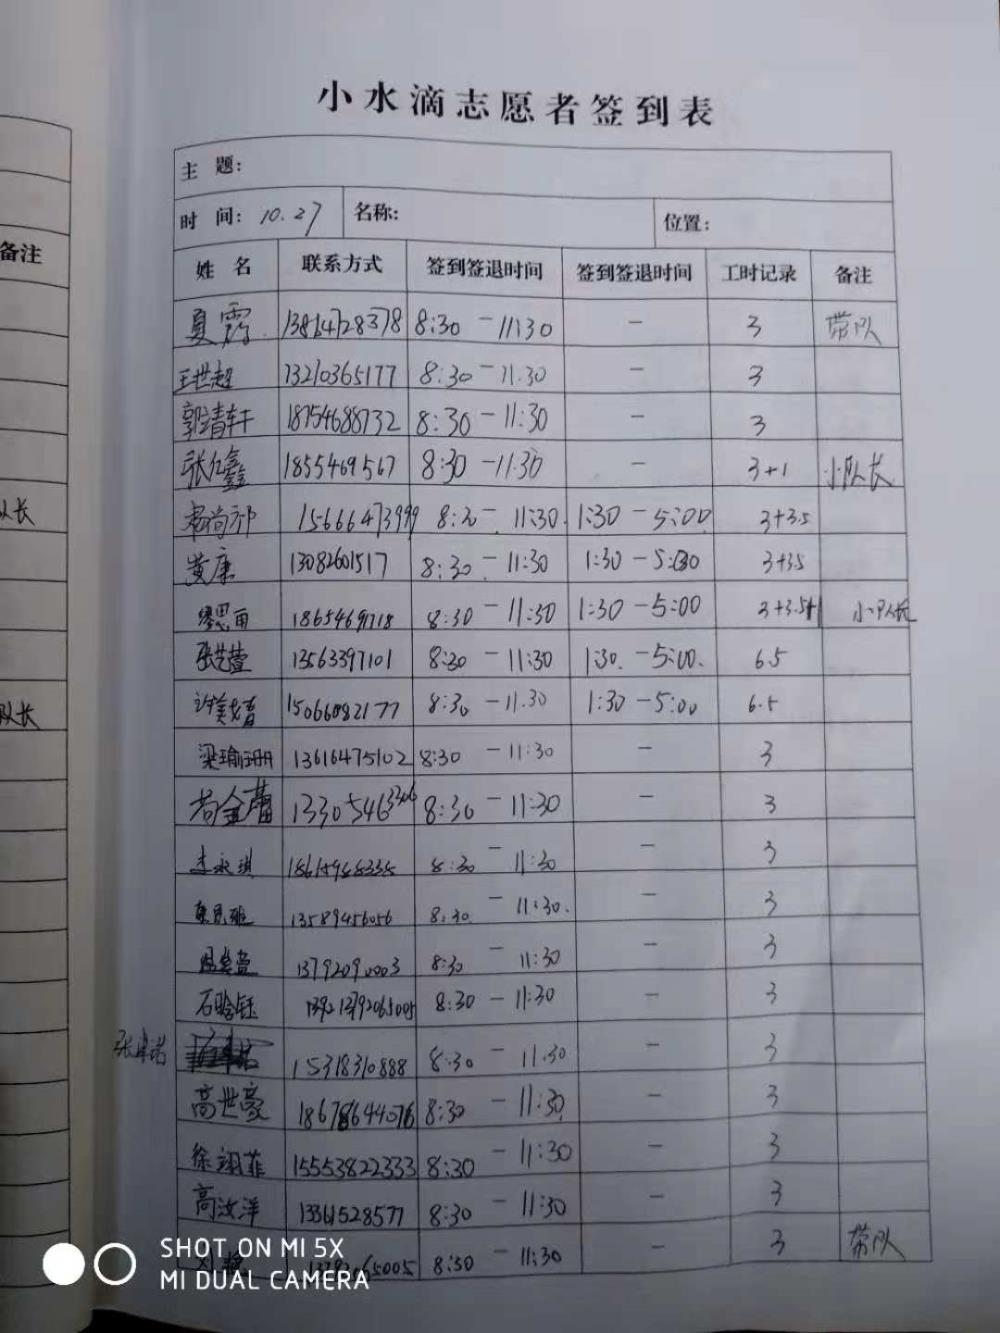 小水滴志愿者签到表
主 题:
时 间: 10.27 名称: 位置:
备注
姓 名 联系方式 签到签退时间 签到签退时间 工时记录 备注
夏霞 13814728378 8:30 - 11:30 - 3 带队
王世超 13210365177 8:30 - 11:30 - 3
郭靖轩 18754688732 8:30 - 11:30 - 3
张红鑫 1855469567 8:30 - 11:30 - 3+1 小队长
队长
15666473999 8:30 - 11:30 1:30 - 5:00 3+3.5
黄康 13082601517 8:30 - 11:30 1:30 - 5:00 3+3.5
缪思雨 8:30 - 11:30 1:30 - 5:00 3+3.5+1 小队长
张艺萱 13563397101 8:30 - 11:30 1:30 - 5:00 6.5
队长
15066082177 8:30 - 11:30 1:30 - 5:00 6.5
梁瑜珊 13616475102 8:30 - 11:30 - 3
尚金蕾 13305463306 8:30 - 11:30 - 3
李永琪 8:30 - 11:30 - 3
13589456056 8:30 - 11:30 - 3
13792090003 8:30 - 11:30 - 3
石晗钰 8:30 - 11:30 - 3
张卓诺 15318310888 8:30 - 11:30 - 3
高世豪 18678644076 8:30 - 11:30 - 3
徐翊菲 15553822333 8:30 - 11:30 - 3
高汝洋 13361528577 8:30 - 11:30 - 3
8:30 - 11:30 - 3 带队
SHOT ON MI 5X
MI DUAL CAMERA